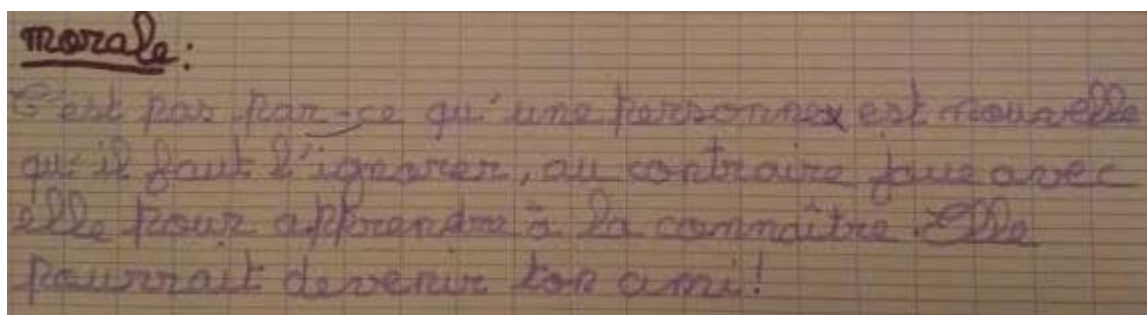 morale:
C'est pas par-ce qu'une personne est nouvelle
qu'il faut l'ignorer, au contraire joue avec
elle pour apprendre à la connaître. Elle
pourrait devenir ton ami!